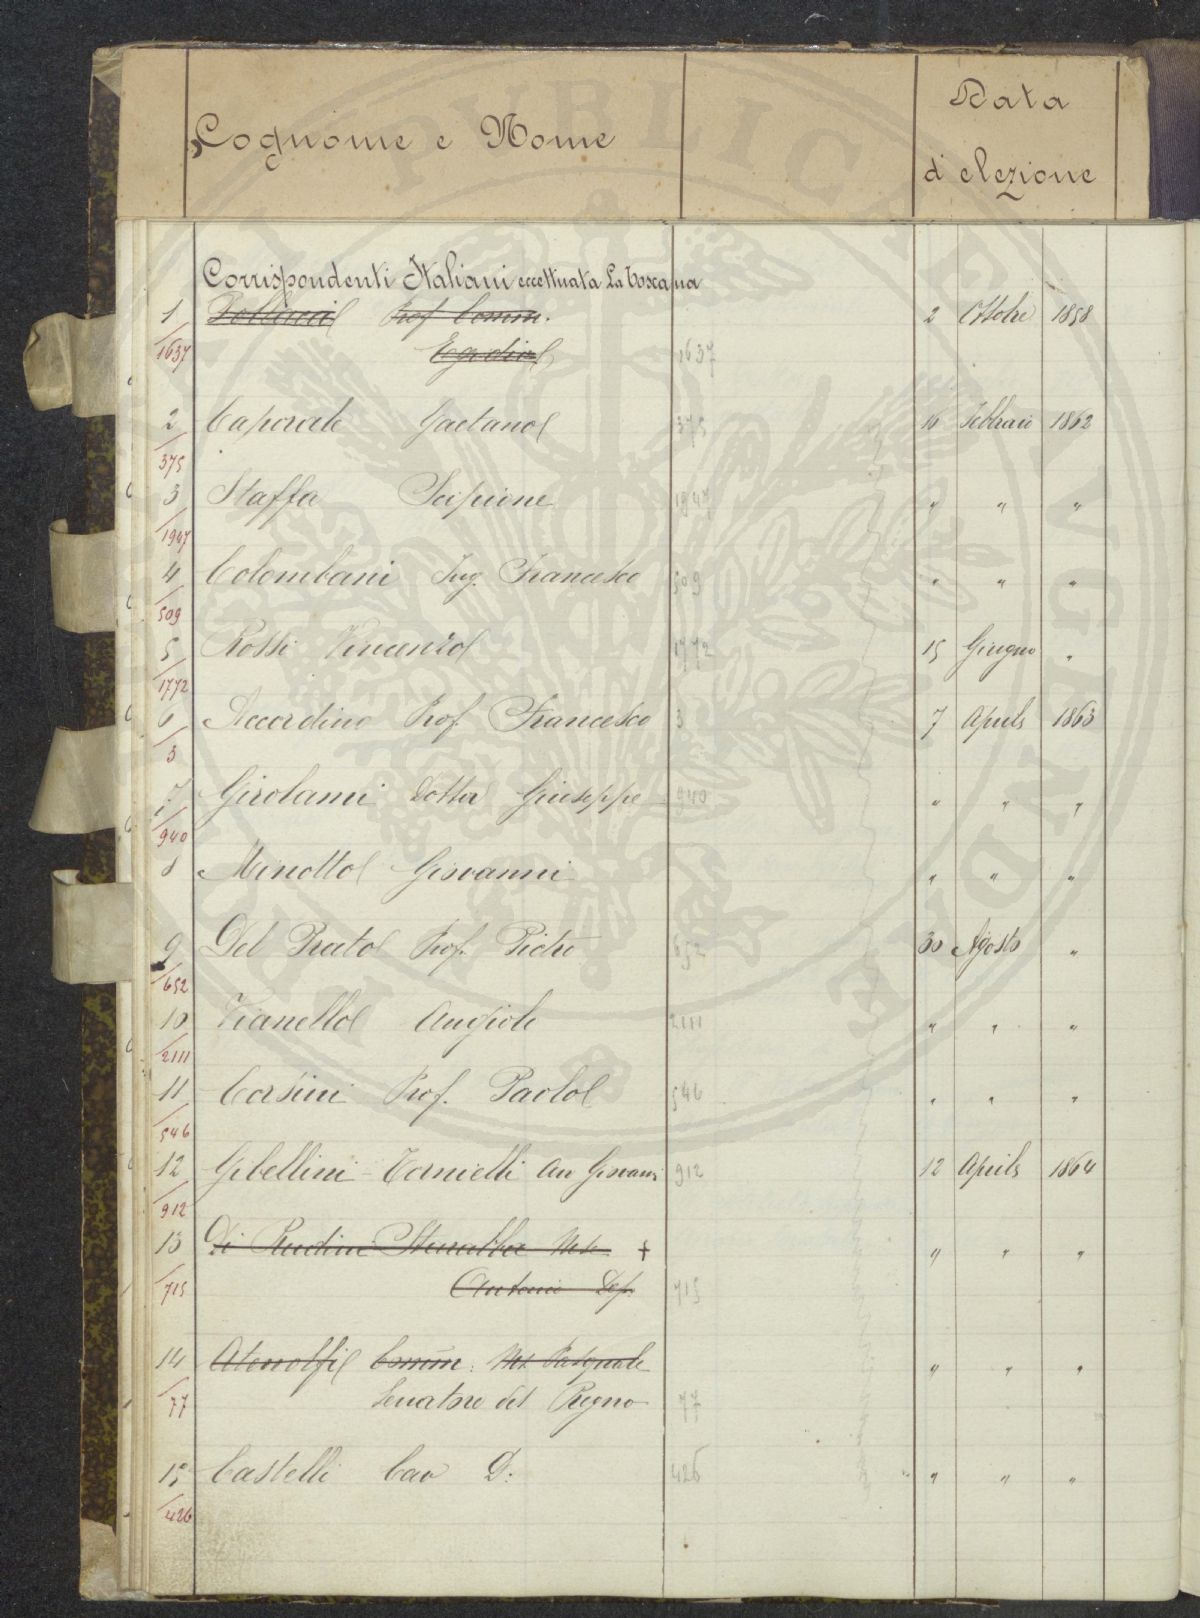 Cognome e Nome
Data
d'elezione
Corrispondenti Italiani eccettuata La Toscana
1 Prof Comm. 2 Ottobre 1858
1637 Egidio 1637
2 Caporale Gaetano 375 16 Febbraio 1862
375
3 Staffa Scipione 1947 " " "
1947
4 Colombani Ing. Francesco 509 " " "
509
5 Rossi Vincenzo 1772 15 Giugno "
1772
6 Accordino Prof. Francesco 3 7 Aprile 1863
3
7 Girolami Dottor Giuseppe 940 " " "
940
8 Minotto Giovanni " " "
9 Del Prato Prof. Pietro 652 30 Agosto "
652
10 Vianello Angiolo 2111 " " "
2111
11 Corsini Prof. Paolo 546 " " "
546
12 Gibellini-Tornielli Giovanni 912 12 Aprile 1864
912
13 Di Rudinì Starabba + " " "
715 Antonio Dep. 715
14 Atenolfi Comm. Pasquale " " "
77 Senatore del Regno 77
15 Castelli Cav D: 426 " " "
426